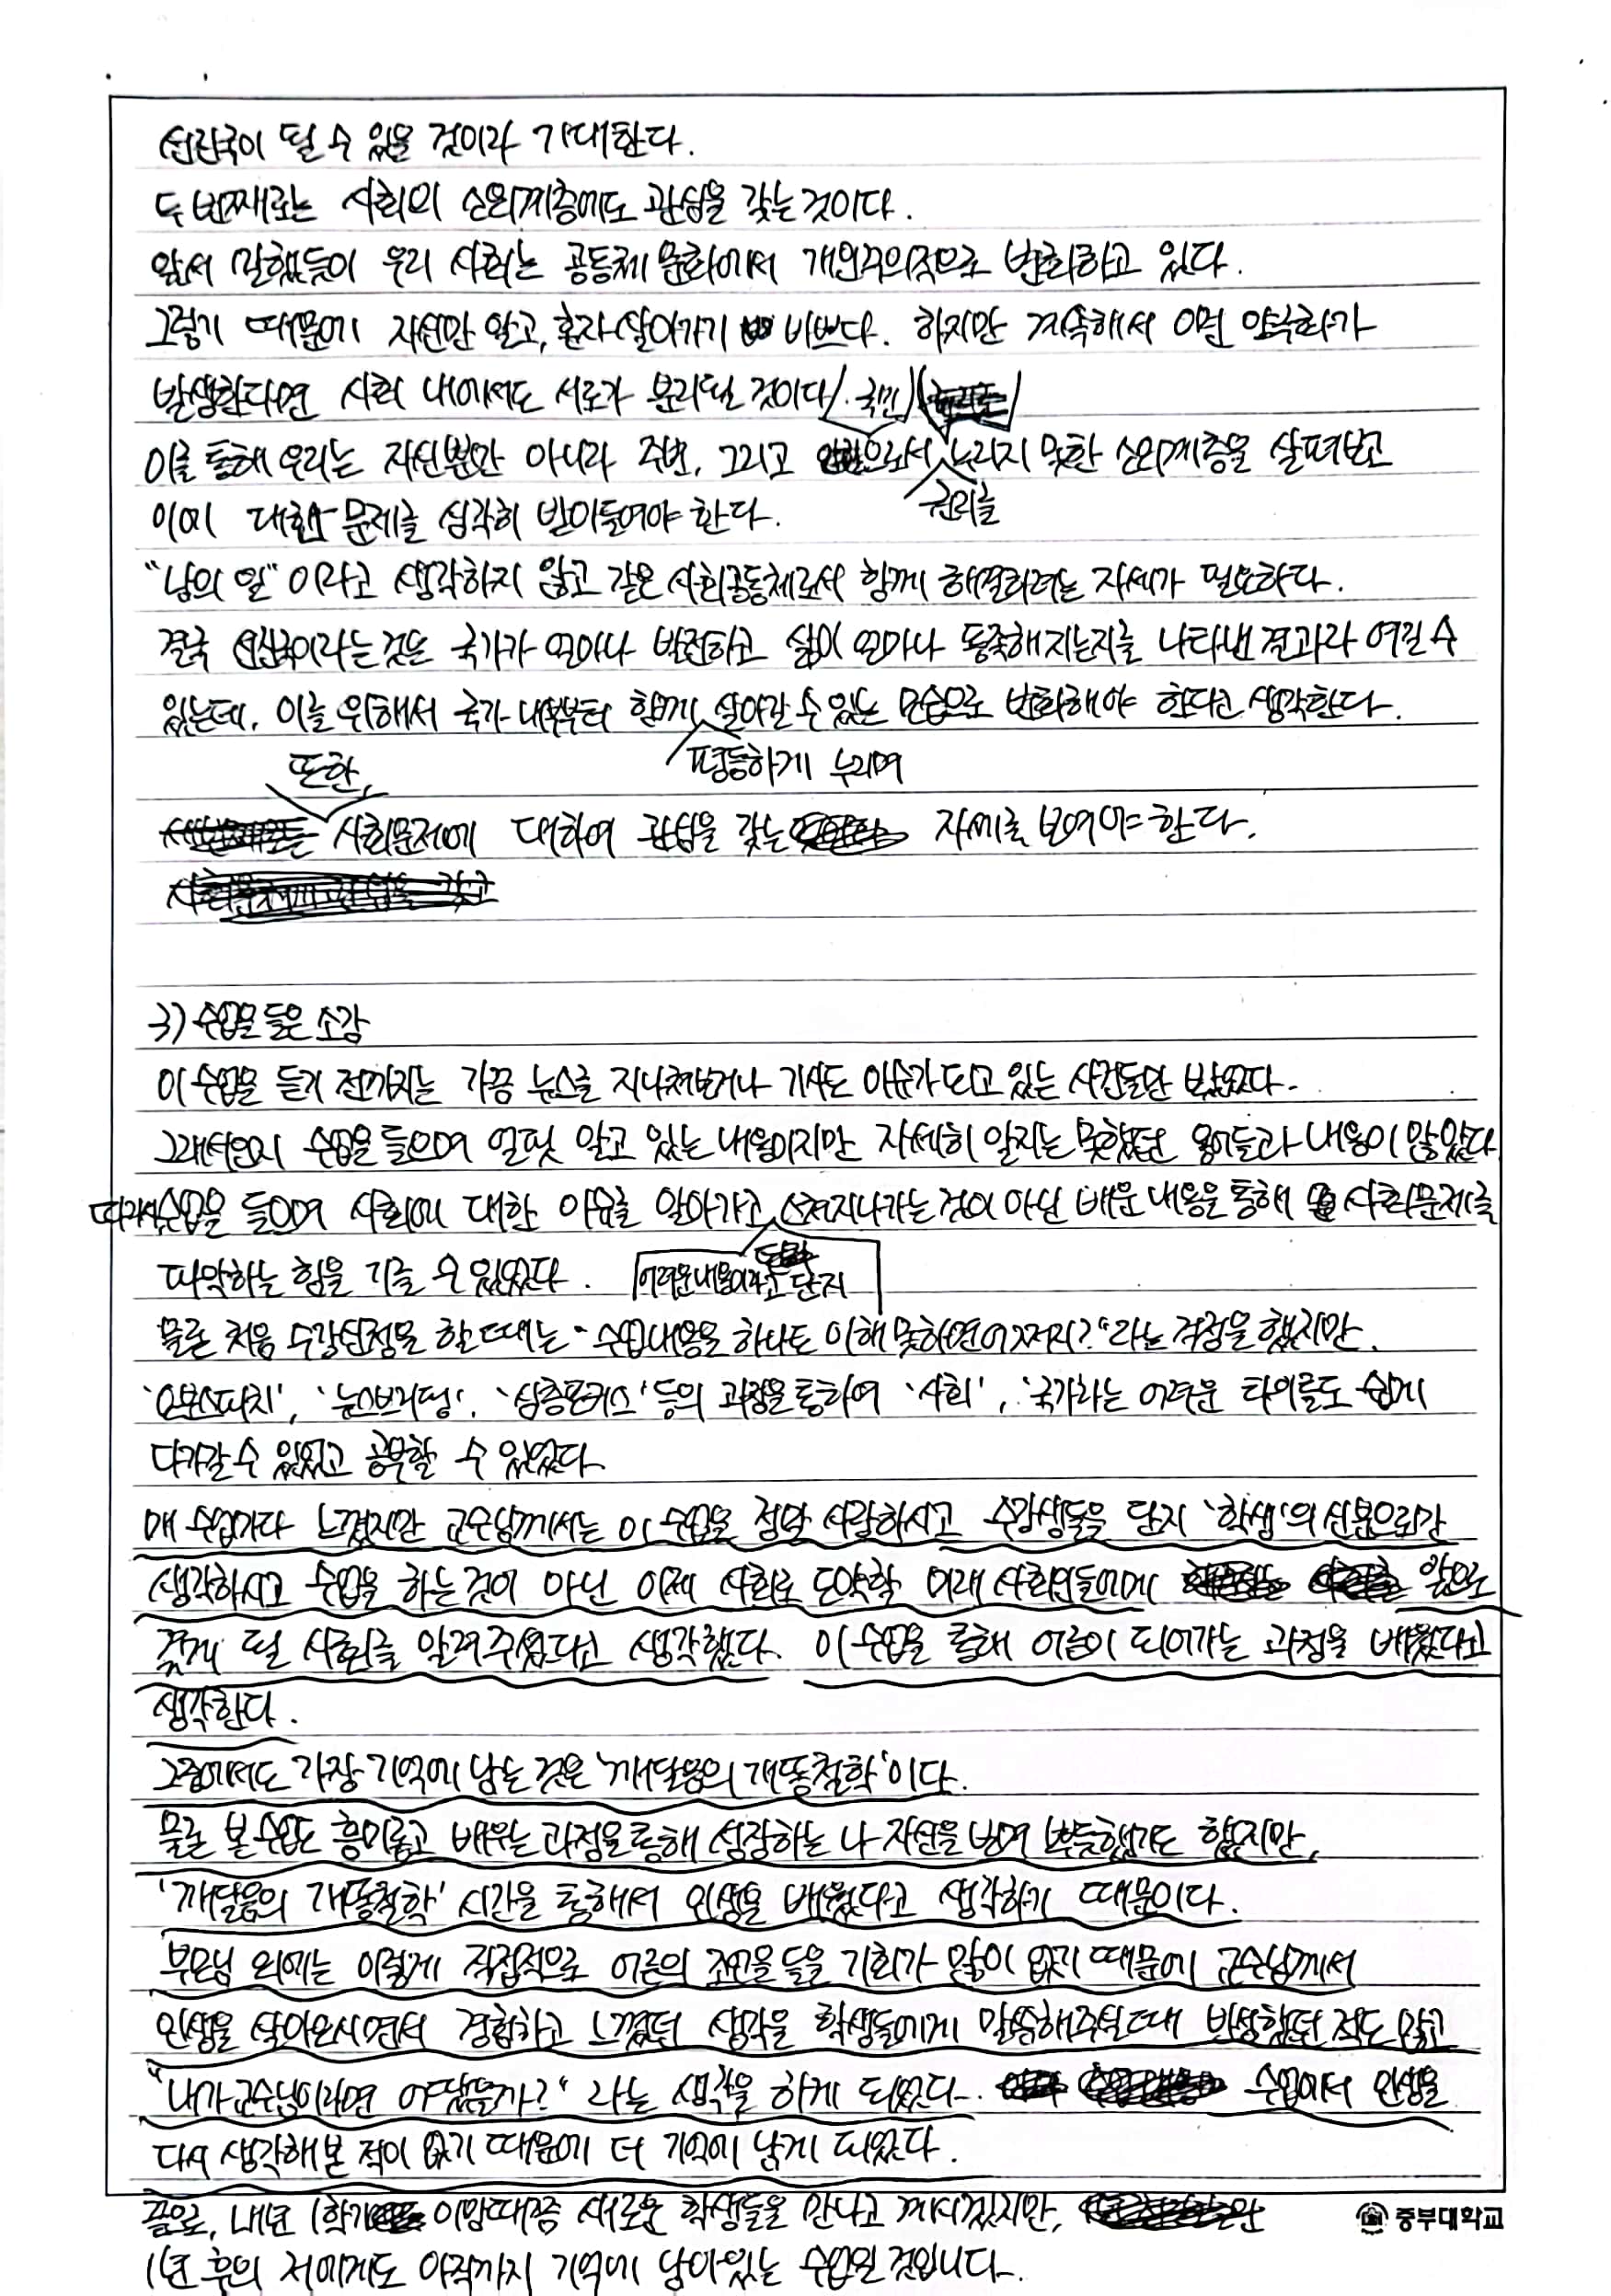 선진국이 될 수 있을 것이라 기대한다.
두 번째로는 사회의 소외계층에도 관심을 갖는 것이다.
앞서 말했듯이 우리 사회는 공동체 문화에서 개인주의적으로 변화하고 있다.
그렇기 때문에 자신만 알고, 혼자 살아가기 바쁘다. 하지만 계속해서 이런 악화가
발생한다면 사회 내에서도 서로가 분리될 것이다.
국민
이를 통해 우리는 자신뿐만 아니라 주변, 그리고 으로서 누리지 못한 소외계층을 살펴보고
권리를
이에 대한 문제를 심각히 받아들여야 한다.
"남의 일" 이라고 생각하지 않고 같은 사회공동체로서 함께 해결하려는 자세가 필요하다.
결국 선진국이라는 것은 국가가 얼마나 발전하고 삶이 얼마나 풍족해지는지를 나타낸 결과라 여길 수
있는데, 이를 위해서 국가 내부부터 함께 살아갈 수 있는 모습으로 변화해야 한다고 생각한다.
또한, 평등하게 누리며
사회문제에 대하여 관심을 갖는 자세를 보여야 한다.
3) 수업을 들은 소감
이 수업을 듣기 전까지는 가끔 뉴스를 지나쳐보거나 기사도 이슈가 되고 있는 사건들만 봤었다.
그래서인지 수업을 들으며 얼핏 알고 있는 내용이지만 자세히 알지는 못했던 용어들과 내용이 많았다.
따라서 수업을 들으며 사회에 대한 이슈를 알아가고 스쳐지나가는 것이 아닌 배운 내용을 통해 사회문제를
파악하는 힘을 기를 수 있었다.
어려운 내용이라고 단지
물론 처음 수강신청을 할 때는 "수업내용을 하나도 이해 못하면 어쩌지?"라는 걱정을 했지만,
'오보스파치', '뉴스브리핑', '심층포커스' 등의 과정을 통하여 '사회', '국가라는 어려운 타이틀도 쉽게
다가갈 수 있었고 공부할 수 있었다.
매 수업마다 느꼈지만 교수님께서는 이 수업을 정말 사랑하시고 수강생들을 단지 '학생'의 신분으로만
생각하시고 수업을 하는 것이 아닌 이제 사회로 도약할 미래 사회인들에게 앞으로
겪게 될 사회를 알려주셨다고 생각했다. 이 수업을 통해 어른이 되어가는 과정을 배웠다고
생각한다.
그중에서도 가장 기억에 남는 것은 '깨달음의 개똥철학'이다.
물론 본 수업도 흥미롭고 배우는 과정을 통해 성장하는 나 자신을 보며 뿌듯했기도 했지만,
'깨달음의 개똥철학' 시간을 통해서 인생을 배웠다고 생각하기 때문이다.
부모님 외에는 이렇게 직접적으로 어른의 조언을 들을 기회가 많이 없기 때문에 교수님께서
인생을 살아오시면서 경험하고 느꼈던 생각을 학생들에게 말씀해주실 때 반성했던 적도 많고
"내가 교수님이라면 어땠을까?" 라는 생각을 하게 되었다. 수업에서 인생을
다시 생각해본 적이 없기 때문에 더 기억에 남게 되었다.
끝으로, 내년 1학기 이맘때쯤 새로운 학생들을 만나고 계시겠지만,
1년 후의 저에게도 아직까지 기억에 남아있는 수업일 것입니다.
중부대학교